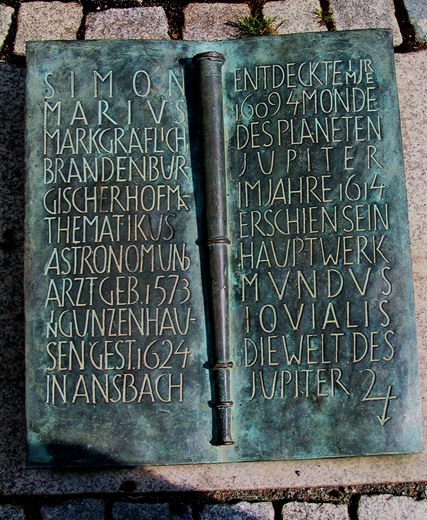 SIMON
MARIVS
MARKGRÄFLICH
BRANDENBUR
GISCHER HOFMA
THEMATIKUS
ASTRONOM UND
ARZT GEB. 1573
IN GUNZENHAU-
SEN GEST. 1624
IN ANSBACH
ENTDECKTE IM JAHRE
1609 4 MONDE
DES PLANETEN
JUPITER
IM JAHRE 1614
ERSCHIEN SEIN
HAUPTWERK
MVNDVS
IOVIALIS
DIE WELT DES
JUPITER ♃